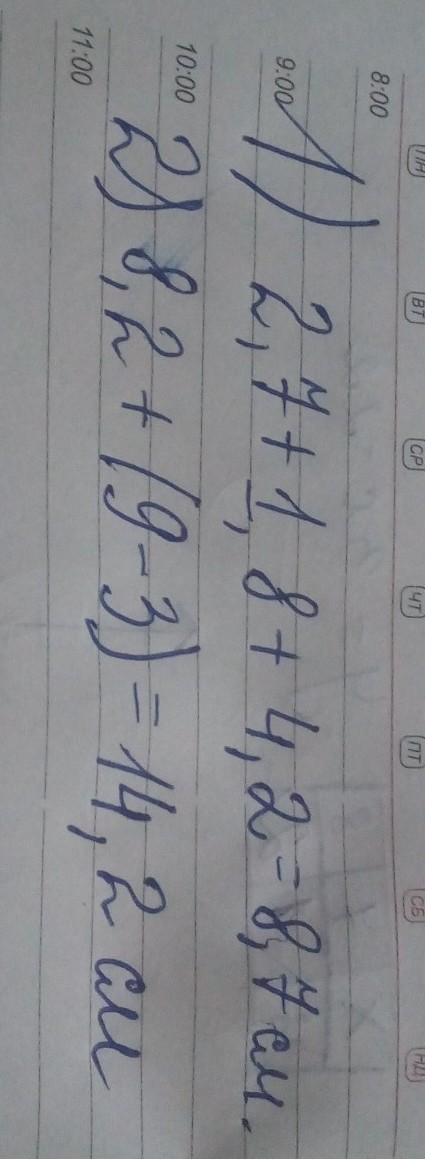 ПН ВТ СР ЧТ ПТ СБ НД
8:00
9:00
1) 2,7+1,8+4,2=8,7 см.
10:00
2) 8,2+(9-3)=14,2 см
11:00